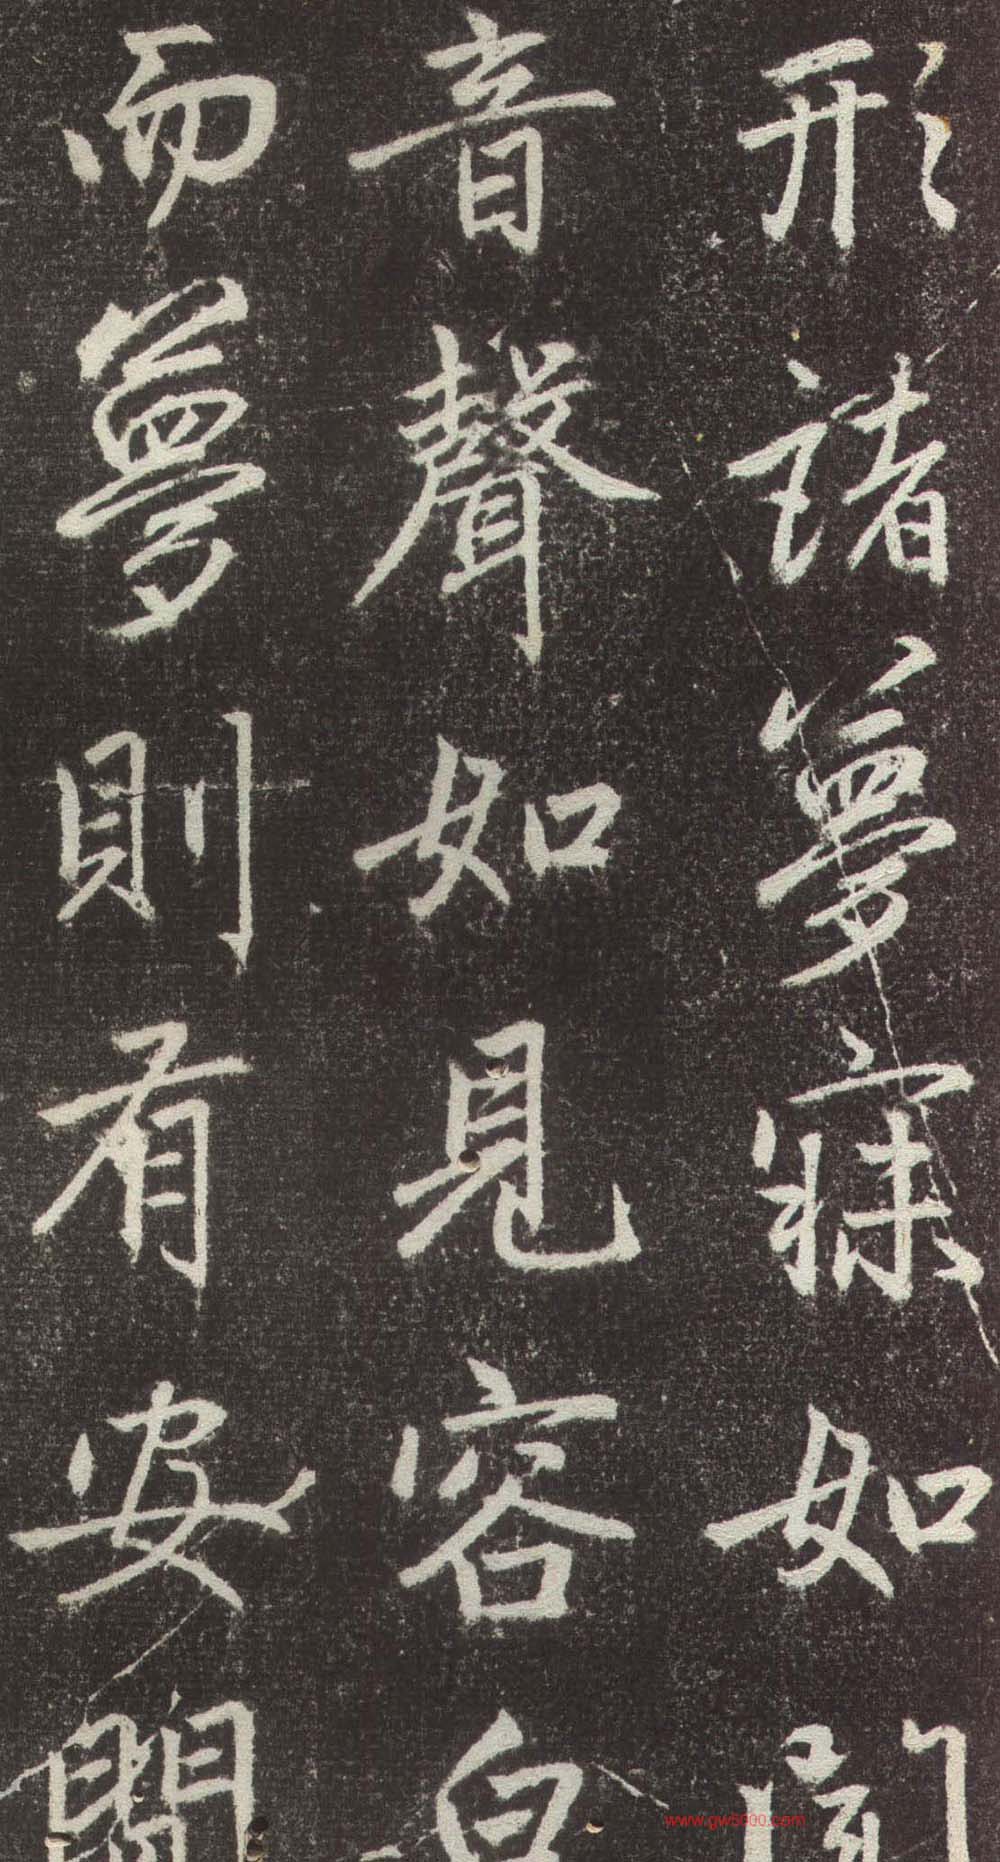 形諸夢寐如聞
音聲如見容
而夢則有安
www.gw5000.com